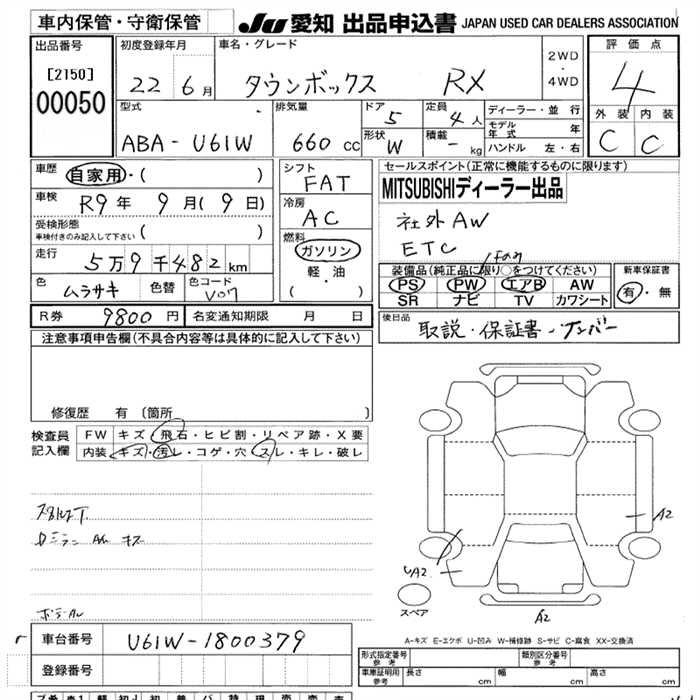 車内保管・守衛保管
JU 愛知 出品申込書 JAPAN USED CAR DEALERS ASSOCIATION
出品番号
[2150]
00050
初度登録年月
22 6月
車名・グレード
タウンボックス RX
2WD
・
4WD
評価点
4
外装 内装
C C
型式
ABA-U61W
排気量
660 CC
ドア
5
形状
W
定員
4人
積載
- kg
ディーラー・並行
モデル年式 年
ハンドル 左・右
車歴
自家用・( )
車検
R9年 9月(9日)
受検形態
車検付きのみ記入して下さい
( )
走行
5万9千482km
色
ムラサキ
色替
色コード
シフト
FAT
冷房
AC
燃料
ガソリン
・
軽・油
( )
セールスポイント(正常に機能するものに限ります)
MITSUBISHIディーラー出品
社外AW
ETC
装備品(純正品に限り○をつけてください)
PS PW エアB AW
SR ナビ TV カワシート
新車保証書
有・無
R券 9800円
名変通知期限 月 日
後日品
取説・保証書・ナンバー
注意事項申告欄(不具合内容等は具体的に記入して下さい)
修復歴 有(箇所 )
検査員
記入欄
FW キズ・飛石・ヒビ割・リペア跡・X要
内装 キズ・汚レ・コゲ・穴・スレ・キレ・破レ
A2
A2
A2
スペア
A-キズ E-エクボ U-凹み W-補修跡 S-サビ C-腐食 XX-交換済
車台番号 U61W-1800379
登録番号
形式指定番号
参考
類別区分番号
参考
車庫証明用
参考
長さ cm 幅 cm 高さ cm